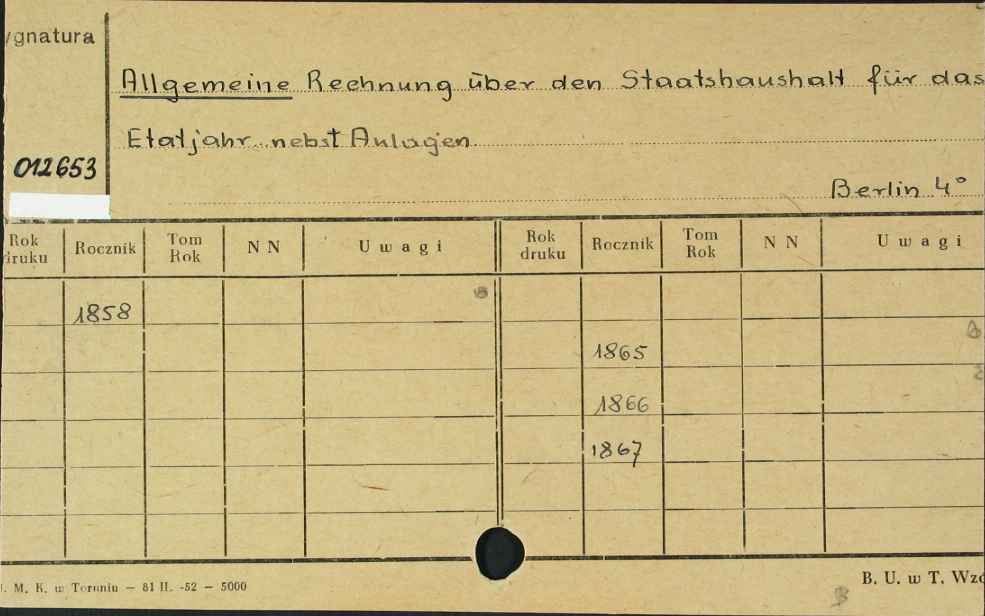 ygnatura
Allgemeine Rechnung über den Staatshaushalt für das
Etatjahr nebst Anlagen
012653
Berlin 4°
Rok druku Rocznik Tom Rok N N Uwagi Rok druku Rocznik Tom Rok N N Uwagi
1858
1865
1866
1867
. M. K. w Toruniu — 81 II. -52 — 5000
B. U. w T. Wzó